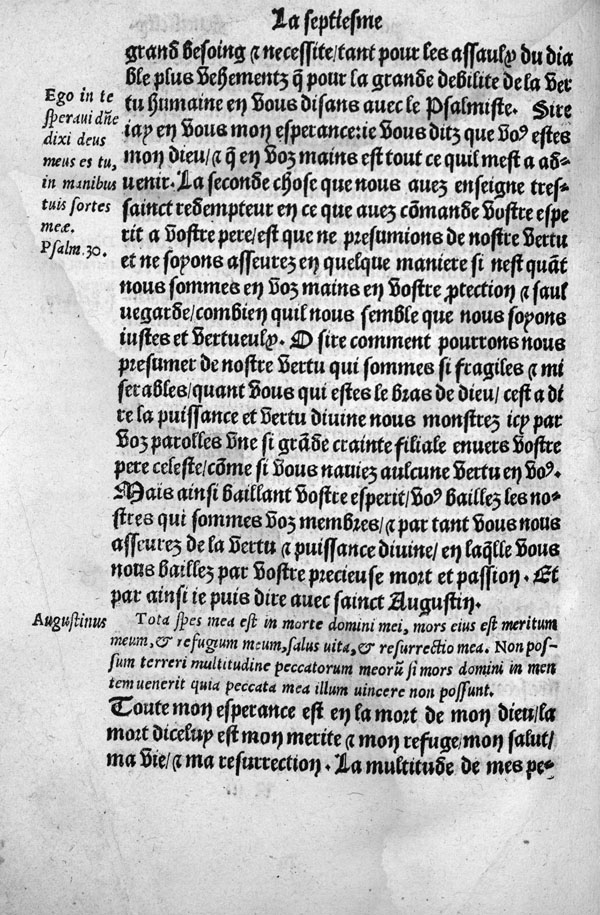 La septiesme
grand besoing & necessite/tant pour les assaulx du dia
ble plus vehementz q̃ pour la grande debilite de la ver
tu humaine en vous disans avec le Psalmiste. Sire
iay en vous mon esperance: ie vous ditz que voꝰ estes
mon dieu/& q̃ en voz mains est tout ce quil mest a ad-
venir. La seconde chose que nous avez enseigne tres-
sainct redempteur en ce que avez cõmande vostre espe
rit a vostre pere/est que ne presumions de nostre vertu
et ne soyons asseurez en quelque maniere si nest quãt
nous sommes en voz mains en vostre ꝓtection & saul
vegarde/combien quil nous semble que nous soyons
iustes et vertueulx. O sire comment pourrons nous
presumer de nostre vertu qui sommes si fragiles & mi
serables/quant vous qui estes le bras de dieu/ cest a di
re la puissance et vertu divine nous monstrez icy par
voz parolles vne si grãde crainte filiale envers vostre
pere celeste/cõme si vous naviez aulcune vertu en voꝰ.
Mais ainsi baillant vostre esperit/voꝰ baillez les no-
stres qui sommes voz membres/& par tant vous nous
asseurez de la vertu & puissance divine/en laq̃lle vous
nous baillez par vostre precieuse mort et passion. Et
par ainsi ie puis dire avec sainct Augustin.
Tota spes mea est in morte domini mei, mors eius est meritum
meum, & refugium meum, salus vita, & resurrectio mea. Non pos-
sum terreri multitudine peccatorum meorũ si mors domini in men
tem venerit quia peccata mea illum vincere non possunt.
Toute mon esperance est en la mort de mon dieu/la
mort diceluy est mon merite & mon refuge/mon salut/
ma vie/& ma resurrection. La multitude de mes pe-
Ego in te
speravi dñe
dixi deus
meus es tu,
in manibus
tuis sortes
meæ.
Psalm. 30.
Augustinus